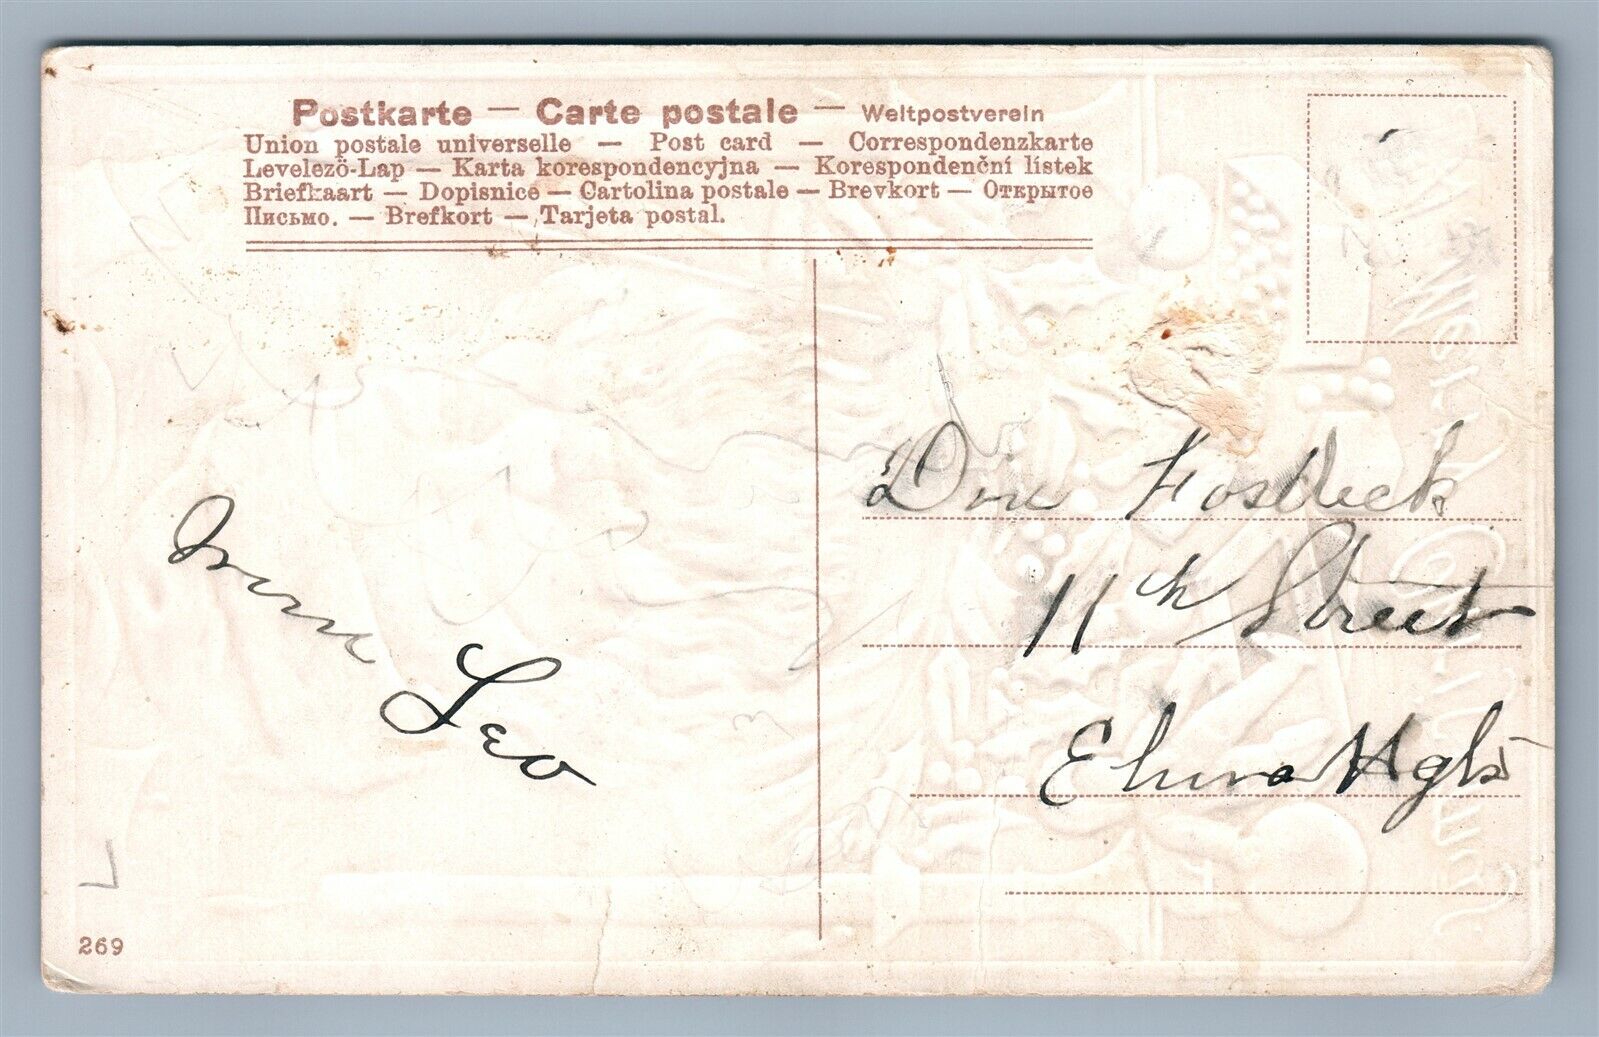 Postkarte — Carte postale — Weltpostverein
Union postale universelle — Post card — Correspondenzkarte
Levelezö-Lap — Karta korespondencyjna — Korespondenční lístek
Briefkaart — Dopisnice — Cartolina postale — Brevkort — Открытое
Письмо. — Brefkort — Tarjeta postal.
11th Street
Elmira Hgts
Leo
269